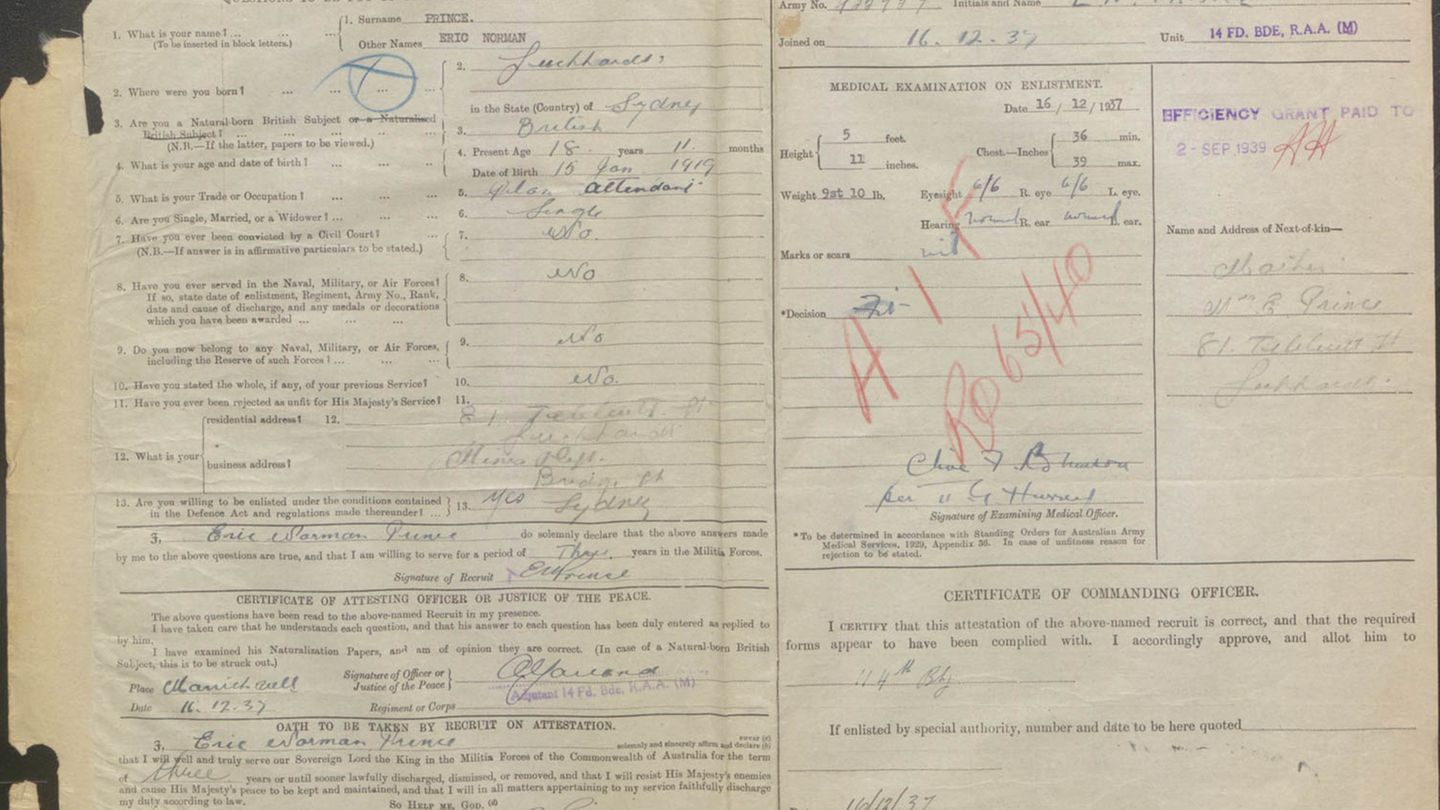 1. What is your name? ... ...
(To be inserted in block letters.)
1. Surname PRINCE.
Other Names ERIC NORMAN
2. Where were you born? ... ... ...
2. Leichhardt,
in the State (Country) of Sydney
3. Are you a Natural-born British Subject or a Naturalised
British Subject? ... ... ... ...
(N.B.—If the latter, papers to be viewed.)
3. British
4. What is your age and date of birth? ... ...
4. Present Age 18 years 11 months
Date of Birth 15 Jan 1919
5. What is your Trade or Occupation? ... ...
5. Plan attendant
6. Are you Single, Married, or a Widower? ... ...
6. Single
7. Have you ever been convicted by a Civil Court? ...
(N.B.—If answer in affirmative particulars to be stated.)
7. No.
8. Have you ever served in the Naval, Military, or Air Forces?
If so, state date of enlistment, Regiment, Army No., Rank,
date and cause of discharge, and any medals or decorations
which you have been awarded ... ... ...
8. No
9. Do you now belong to any Naval, Military, or Air Forces,
including the Reserve of such Forces? ... ... ...
9. No
10. Have you stated the whole, if any, of your previous Service?
10. No.
11. Have you ever been rejected as unfit for His Majesty's Service?
11.
12. What is your
residential address? 12. 81
Leichhardt
business address? Mines Dept.
Bridge St
Sydney
13. Are you willing to be enlisted under the conditions contained
in the Defence Act and regulations made thereunder? ...
13. Yes
I, Eric Norman Prince do solemnly declare that the above answers made
by me to the above questions are true, and that I am willing to serve for a period of Three years in the Militia Forces.
Signature of Recruit E N Prince
CERTIFICATE OF ATTESTING OFFICER OR JUSTICE OF THE PEACE.
The above questions have been read to the above-named Recruit in my presence.
I have taken care that he understands each question, and that his answer to each question has been duly entered as replied to
by him.
I have examined his Naturalization Papers, and am of opinion they are correct. (In case of a Natural-born British
Subject, this is to be struck out.)
Signature of Officer or
Justice of the Peace
Place Marrickville
Adjutant 14 Fd. Bde, R.A.A. (M)
Date 16.12.37 Regiment or Corps
OATH TO BE TAKEN BY RECRUIT ON ATTESTATION.
I, Eric Norman Prince swear (c)
solemnly and sincerely affirm and declare (b)
that I will well and truly serve our Sovereign Lord the King in the Militia Forces of the Commonwealth of Australia for the term
of three years or until sooner lawfully discharged, dismissed, or removed, and that I will resist His Majesty's enemies
and cause His Majesty's peace to be kept and maintained, and that I will in all matters appertaining to my service faithfully discharge
my duty according to law.
SO HELP ME, GOD. (d)
Army No. Initials and Name
Joined on 16.12.37 Unit 14 FD. BDE, R.A.A. (M)
MEDICAL EXAMINATION ON ENLISTMENT.
Date 16/12/1937
Height 5 feet.
11 inches.
Chest.—Inches 36 min.
39 max.
Weight 9st 10 lb. Eyesight 6/6 R. eye 6/6 L. eye.
Hearing normal R. ear. normal L. ear.
Marks or scars nil
*Decision Fit
A I F
Ro 65/40
Signature of Examining Medical Officer.
*To be determined in accordance with Standing Orders for Australian Army
Medical Services, 1929, Appendix 36. In case of unfitness reason for
rejection to be stated.
EFFICIENCY GRANT PAID TO
2 - SEP 1939
Name and Address of Next-of-kin—
Mother
Mrs E Prince
81.
Leichhardt.
CERTIFICATE OF COMMANDING OFFICER.
I CERTIFY that this attestation of the above-named recruit is correct, and that the required
forms appear to have been complied with. I accordingly approve, and allot him to
114th Bty
If enlisted by special authority, number and date to be here quoted
16/12/37